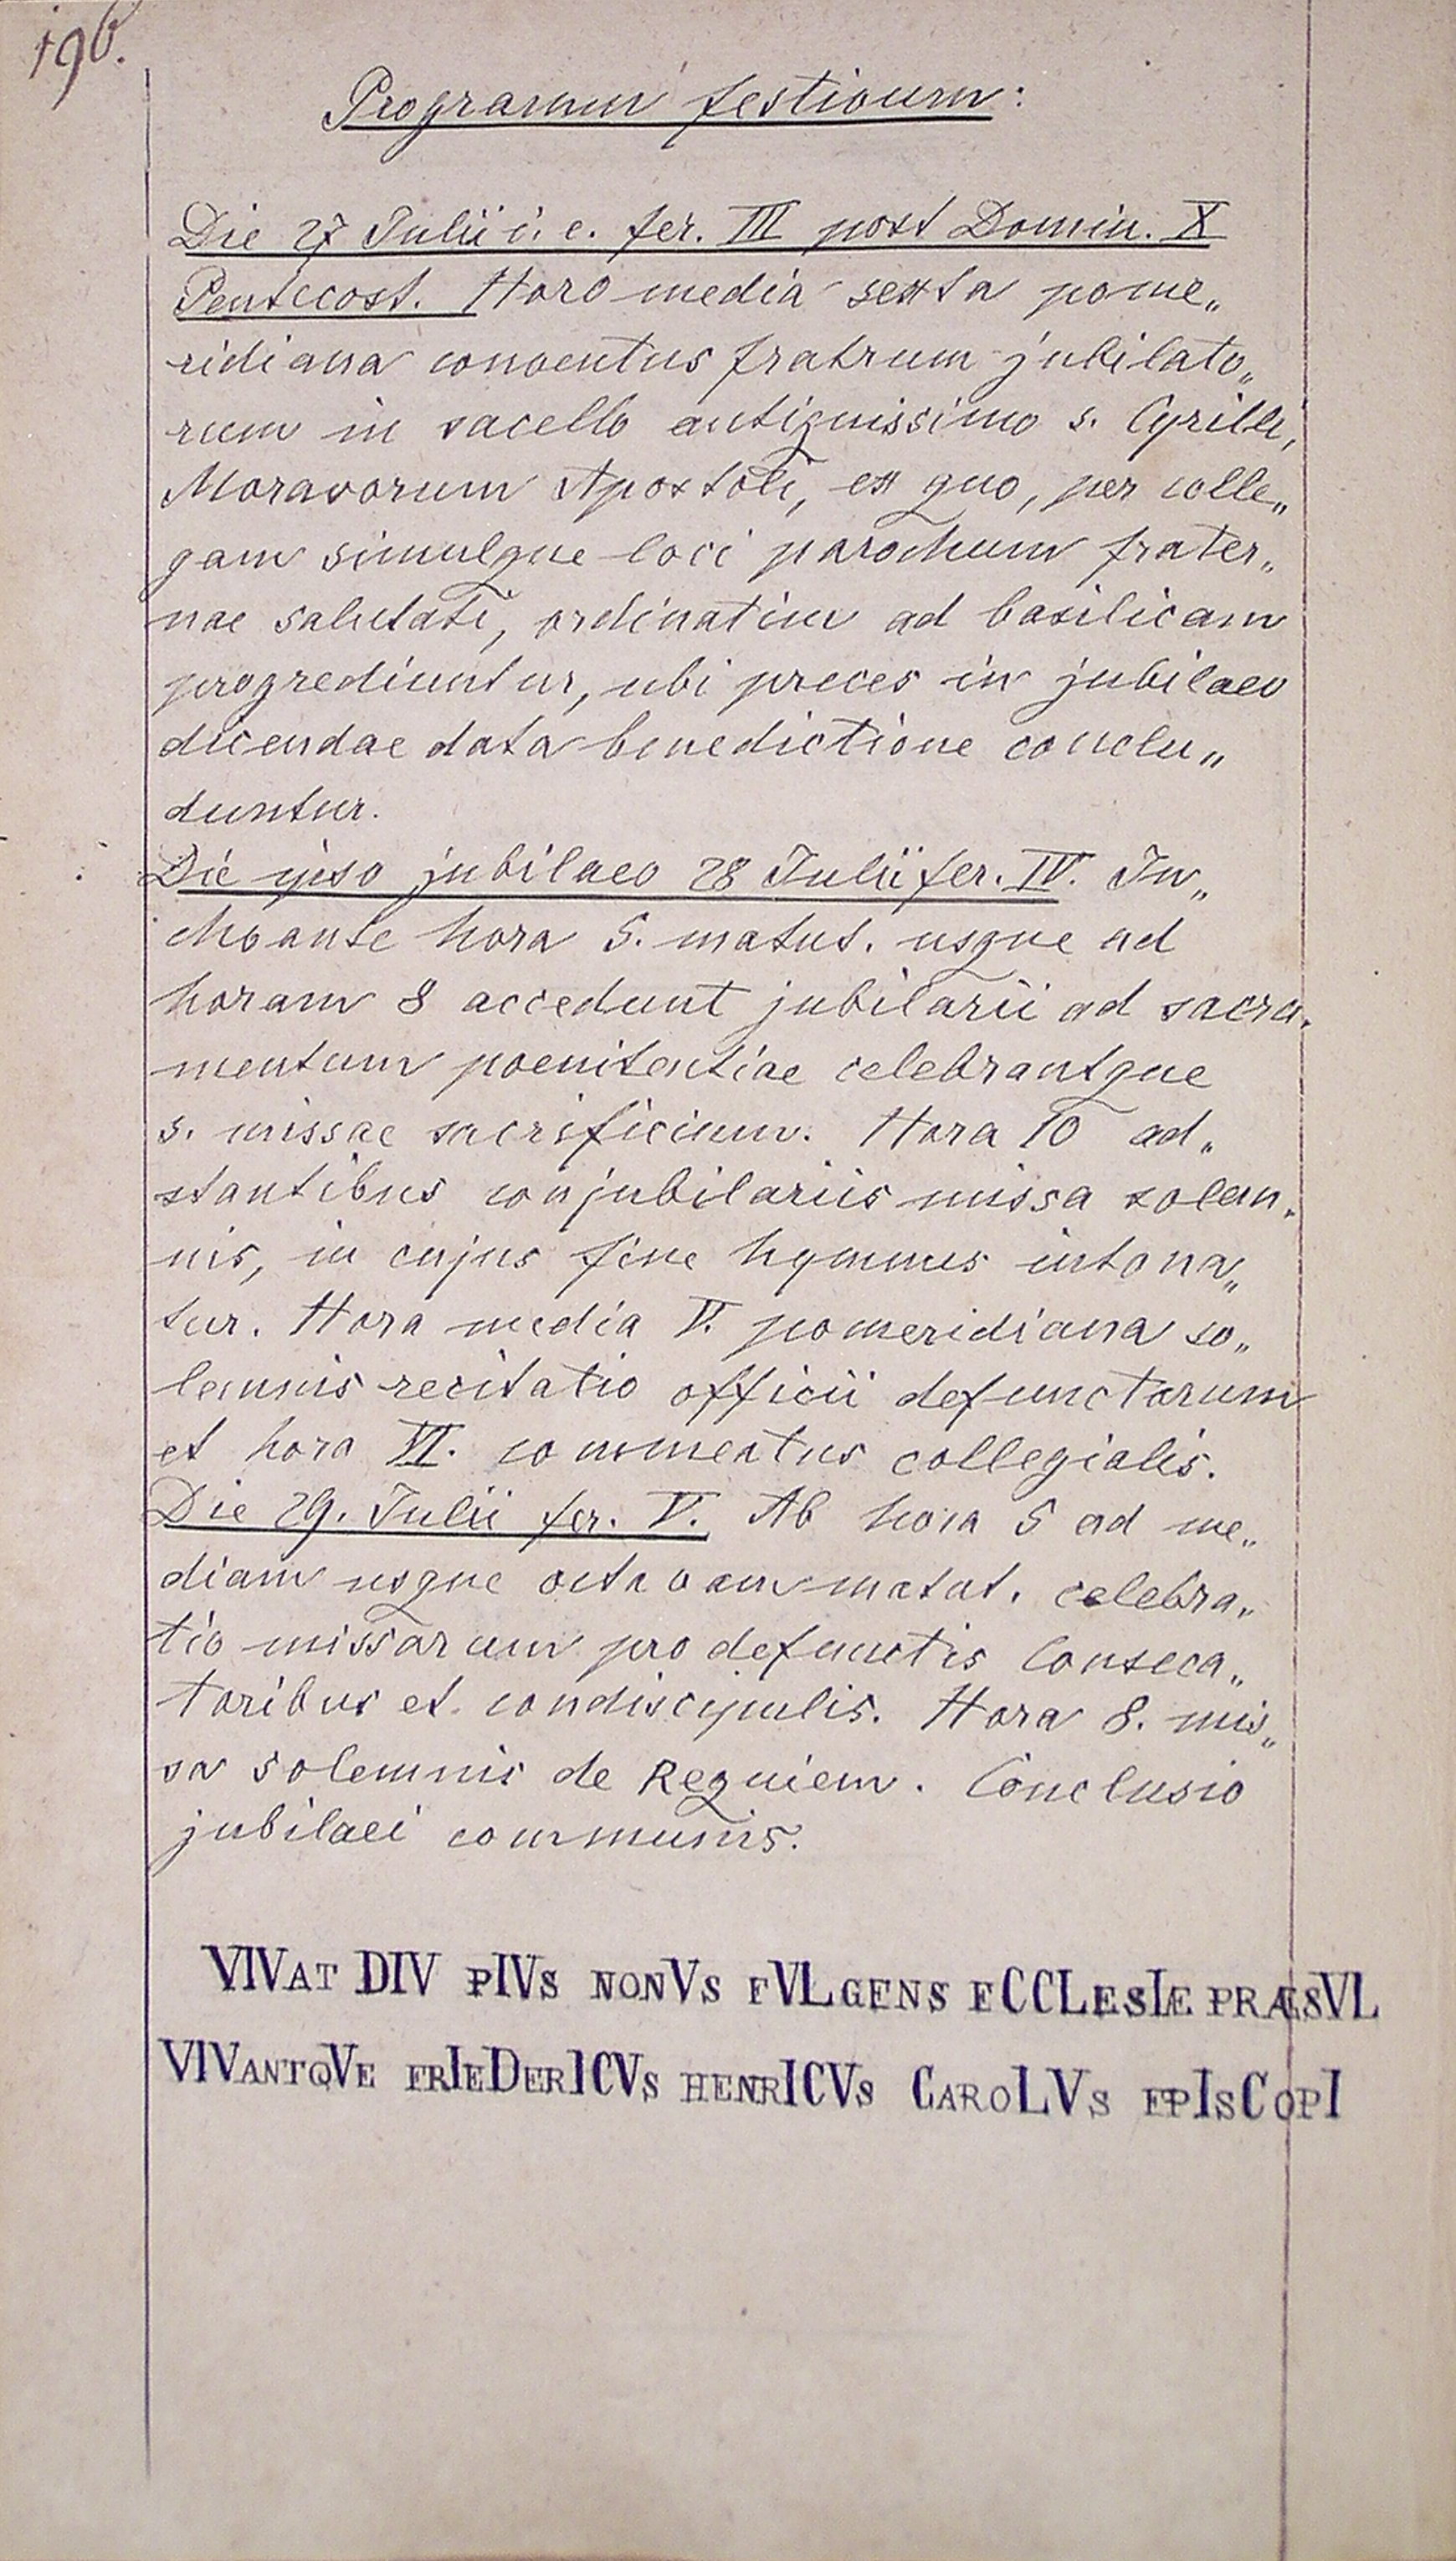 196.
Programm festivum:
Die 27 Julii i. e. fer. III post Domin. X
Pentecost. Hora media sexta pome„
ridiana conventus fratrum jubilato„
rum in sacello antiquissimo s. Cyrilli,
Moravorum Apostoli, ex quo, per colle„
gam simulque loci parochum frater„
nae salutati, ordinatim ad basilicam
progrediuntur, ubi preces in jubilaeo
dicendae data benedictione conclu„
duntur.
Die ipso jubilaeo 28 Julii fer. IV. In„
choante hora 5. matut. usque ad
horam 8 accedunt jubilarii ad sacra„
mentum poenitentiae celebrantque
s. missae sacrificium. Hora 10 ad„
stantibus conjubilariis missa solem„
nis, in cujus fine hymnus intona„
tur. Hora media V. pomeridiana so„
lemnis recitatio officii defunctorum
et hora VI. commeatus collegialis.
Die 29. Julii fer. V. Ab hora 5 ad me„
diam usque octavam matut. celebra„
tio missarum pro defunctis Conseca„
toribus et condiscipulis. Hora 8. mis„
sa solemnis de Requiem. Conclusio
jubilaei communis.
VIVAT DIV PIVS NONVS FVLGENS ECCLESIÆ PRÆSVL
VIVANTQVE FRIEDERICVS HENRICVS CAROLVS EPISCOPI